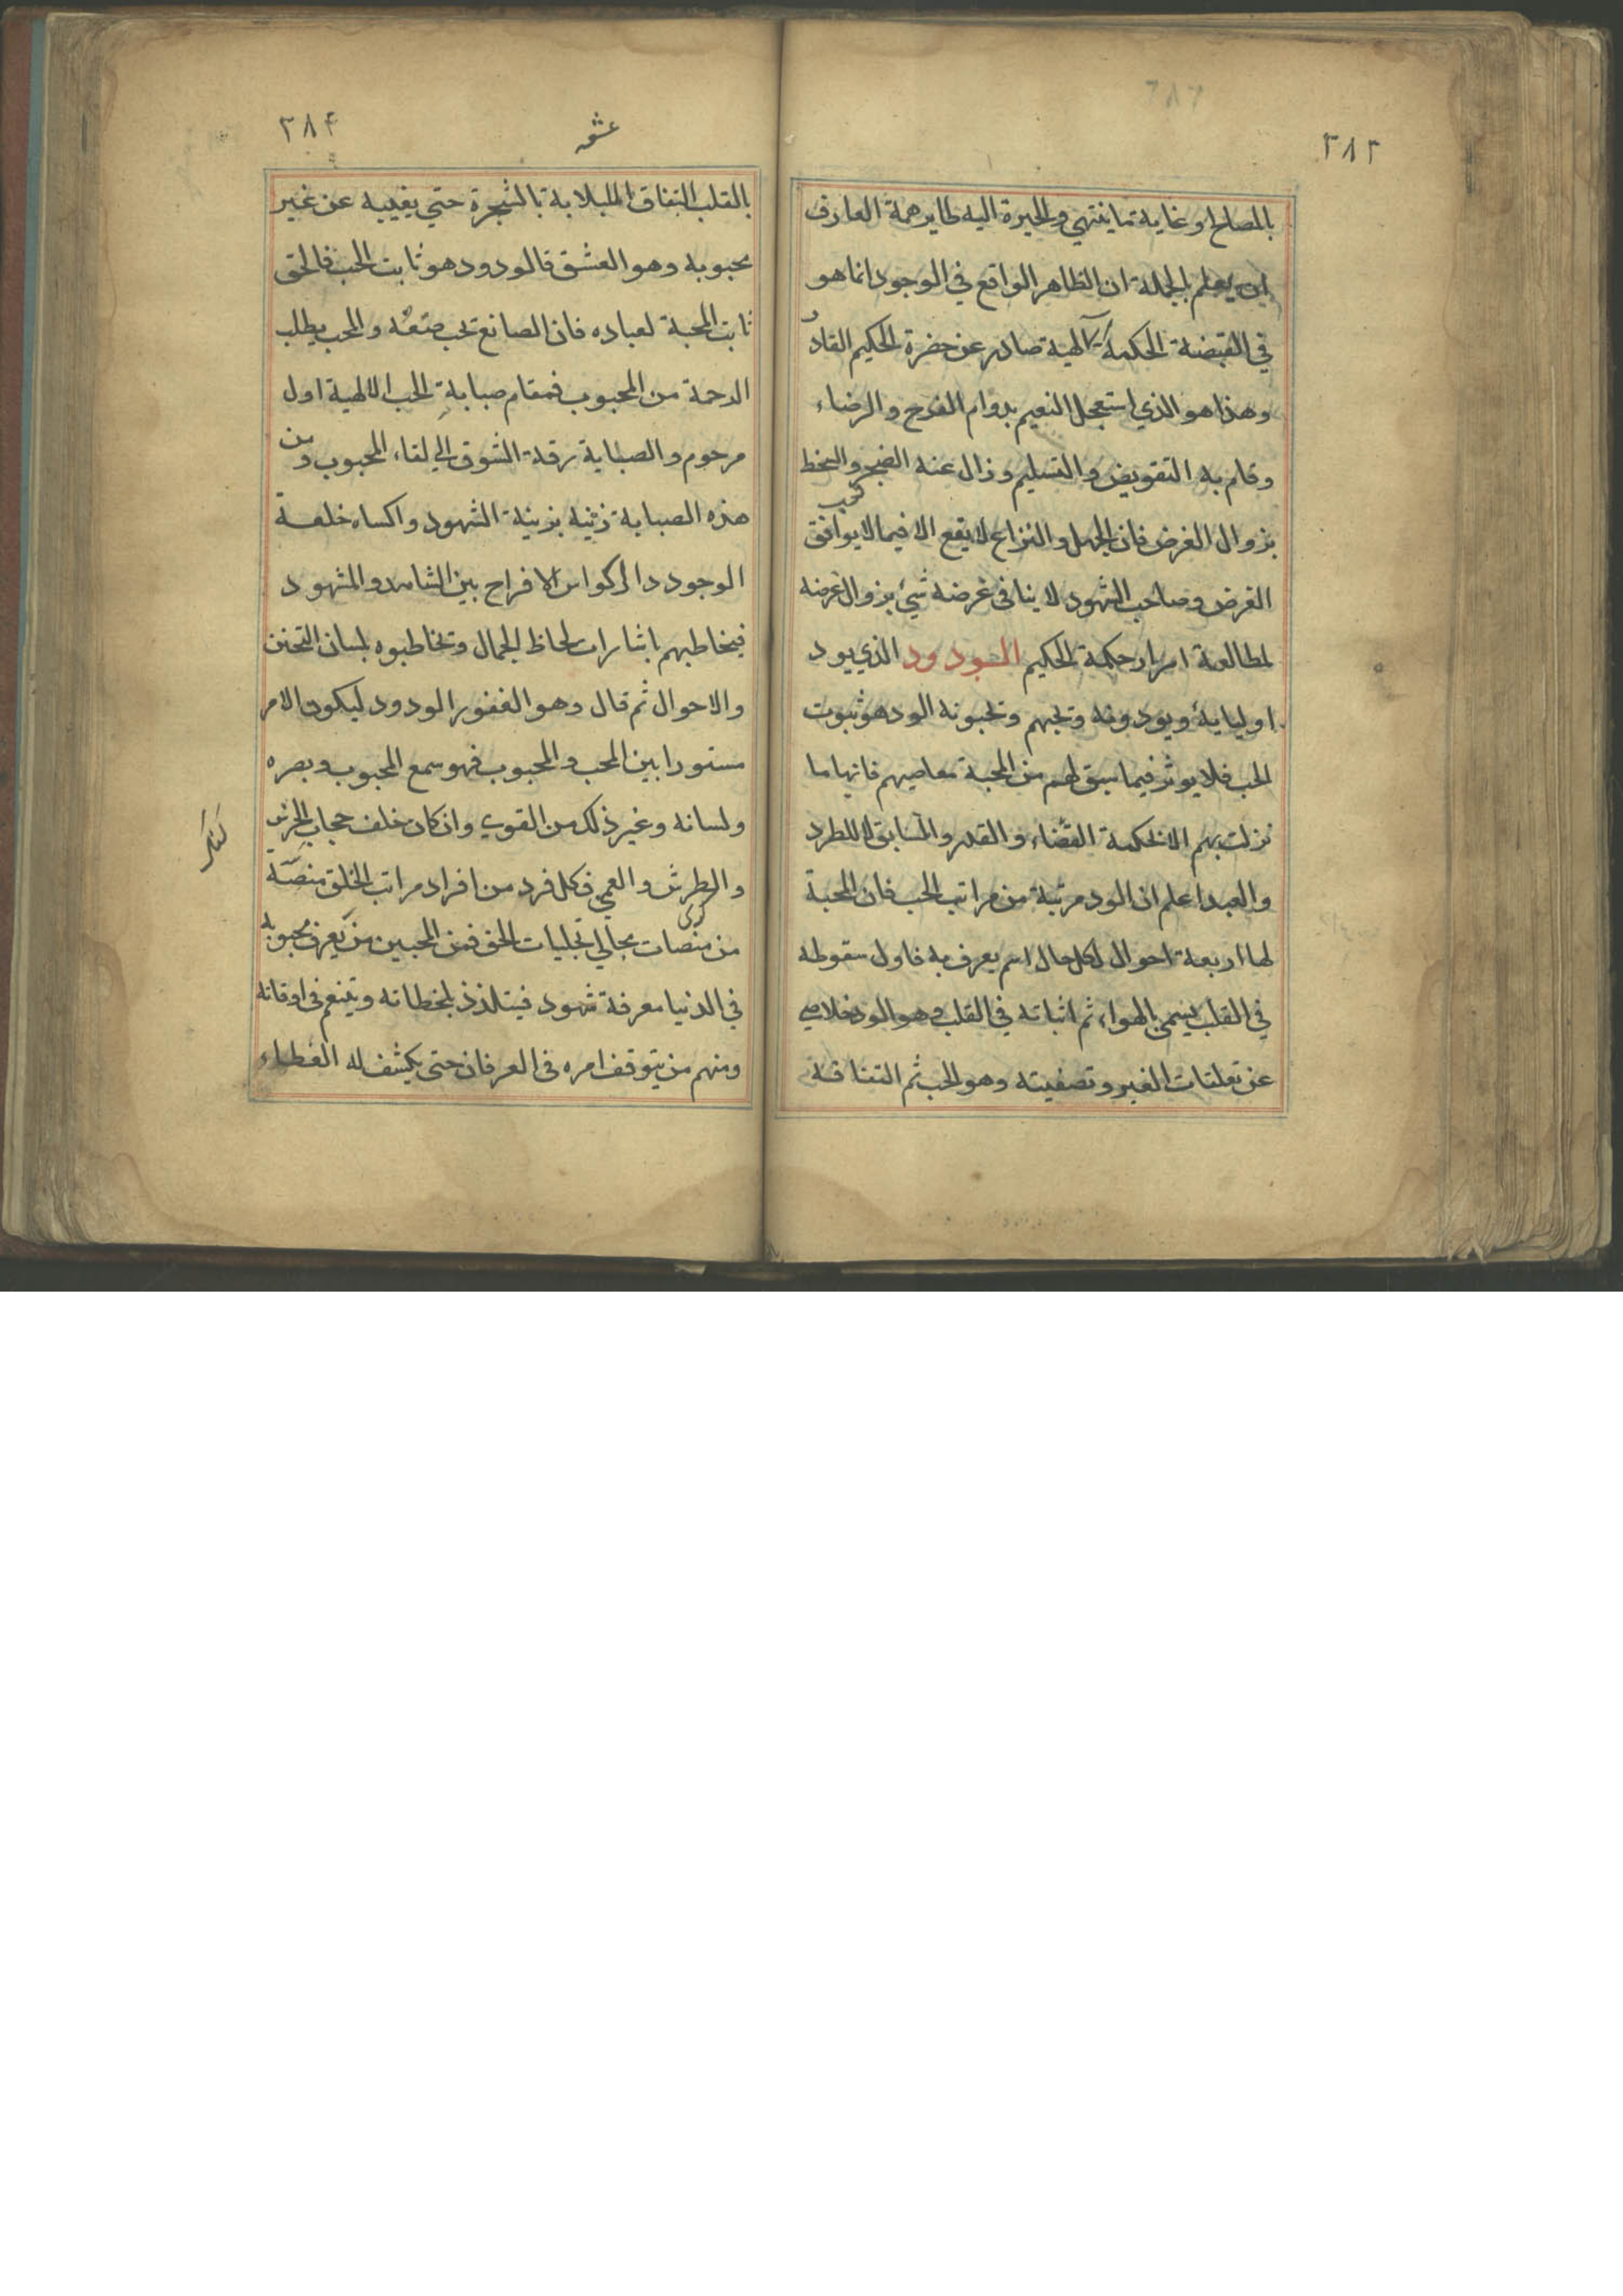 ٣٨٣
بالمصالح او غاية ما ينتهي والحيرة اليه طاير همة العارف
ان يعلم بالجملة ان الظاهر الواقع في الوجود انما هو
في القبضة الحكمة الالهية صادر عن حضرة الحكيم القادر
وهذا هو الذي استعجل النعيم بدوام الفرح والرضاء
وقام به التفويض والتسليم وزال عنه الضجر والسخط
بزوال الغرض فان الجهل والنزاع لا يقع الا فيما لا يوافق
الغرض وصاحب الشهود لا ينافى غرضه شيء بزوال غرضه
لمطالعة اسرار حكمة الحكيم الــودود الذي يود
اوليايه ويودونه ويحبهم ويحبونه الود هو ثبوت
الحب فلا يوثر فيما سبق لهم من المحبة معاصيهم فانها ما
نزلت بهم الا بحكمة القضاء والقدر والسابق لا للطرد
والعبد اعلم ان الود مرتبة من مراتب الحب فان المحبة
لها اربعة احوال لكل حال اسم يعرف به فاول سقوطه
في القلب يسمى بالهواء ثم اثباته في القلب وهو الود خلاصي
عن تعلقات الغير وتصفيته وهو الحب ثم التفافه
٣٨۴
عشق
بالقلب التفاف اللبلابة بالشجرة حتي يغيبه عن غير
محبوبه وهو العشق فالودود هو ثابت الحب فالحق
ثابت المحبة لعباده فان الصانع يحب صنعته والمحب يطلب
الرحمة من المحبوب فمقام صبابة الحب الالهية اول
مرحوم والصبابة رقة الشوق الي لقاء المحبوب ومن
هذه الصبابة زينه بزينة الشهود واكساه خلعة
الوجود دائر كواس الافراح بين الشاهد والمشهود
فيخاطبهم باشارات لحاظ الجمال ويخاطبوه بلسان التحنن
والاحوال ثم قال وهو الغفور الودود ليكون الامر
مستورا بين المحب والمحبوب فهو سمع المحبوب وبصره
ولسانه وغير ذلك من القوي وان كان خلف حجاب الخرس
والطرش والعمي فكل فرد من افراد مراتب الخلق منصّة
من منصات مجالي تجليات الحق فمن المحبين من يعرف محبوبه
في الدنيا معرفة شهود فيتلذذ بلحظاته ويتنعم في اوقاته
ومنهم من يتوقف امره في العرفان حتى يكشف له الغطاء